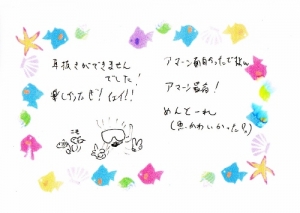 耳抜きができません
でした!
楽しかったぜ!イェイ!!
アマーン面白かったです
アマーン最高!
めんそーれ
(魚、かわいかった!)